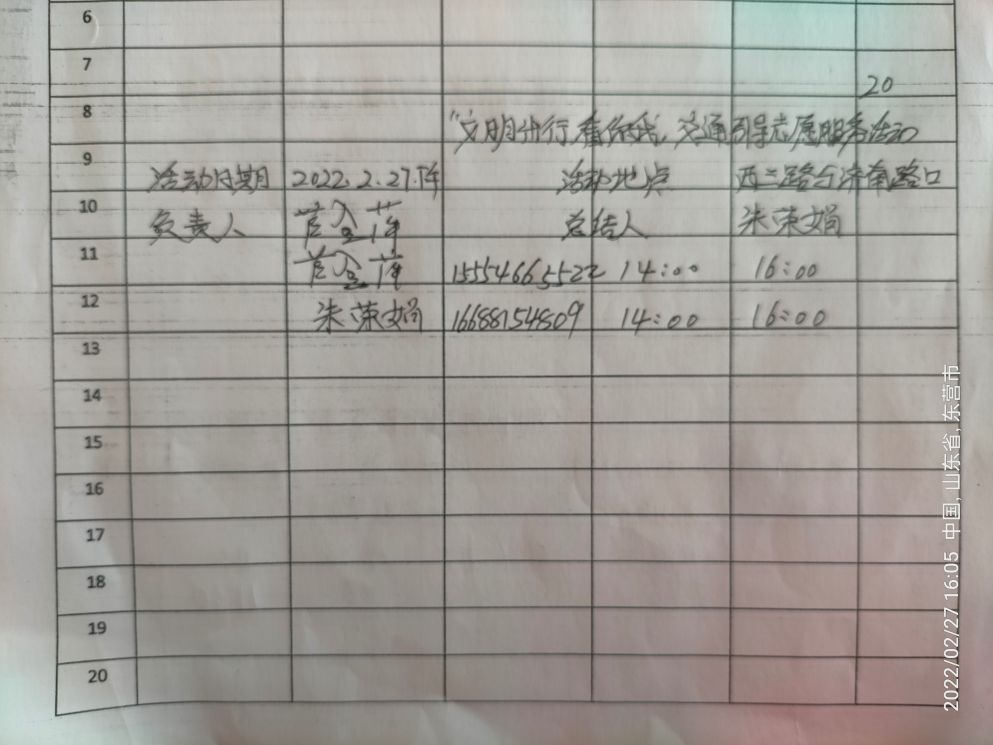 6
7
20
8
"文明出行 看你我, 交通引导志愿服务活动
9
活动日期 2022.2.27.下午 活动地点 西二路与济南路口
10
负责人 总结人 朱荣娟
11
15554665522 14:00 16:00
12
朱荣娟 16688154809 14:00 16:00
13
14
15
16
17
18
19
20
2022/02/27 16:05 中国, 山东省, 东营市